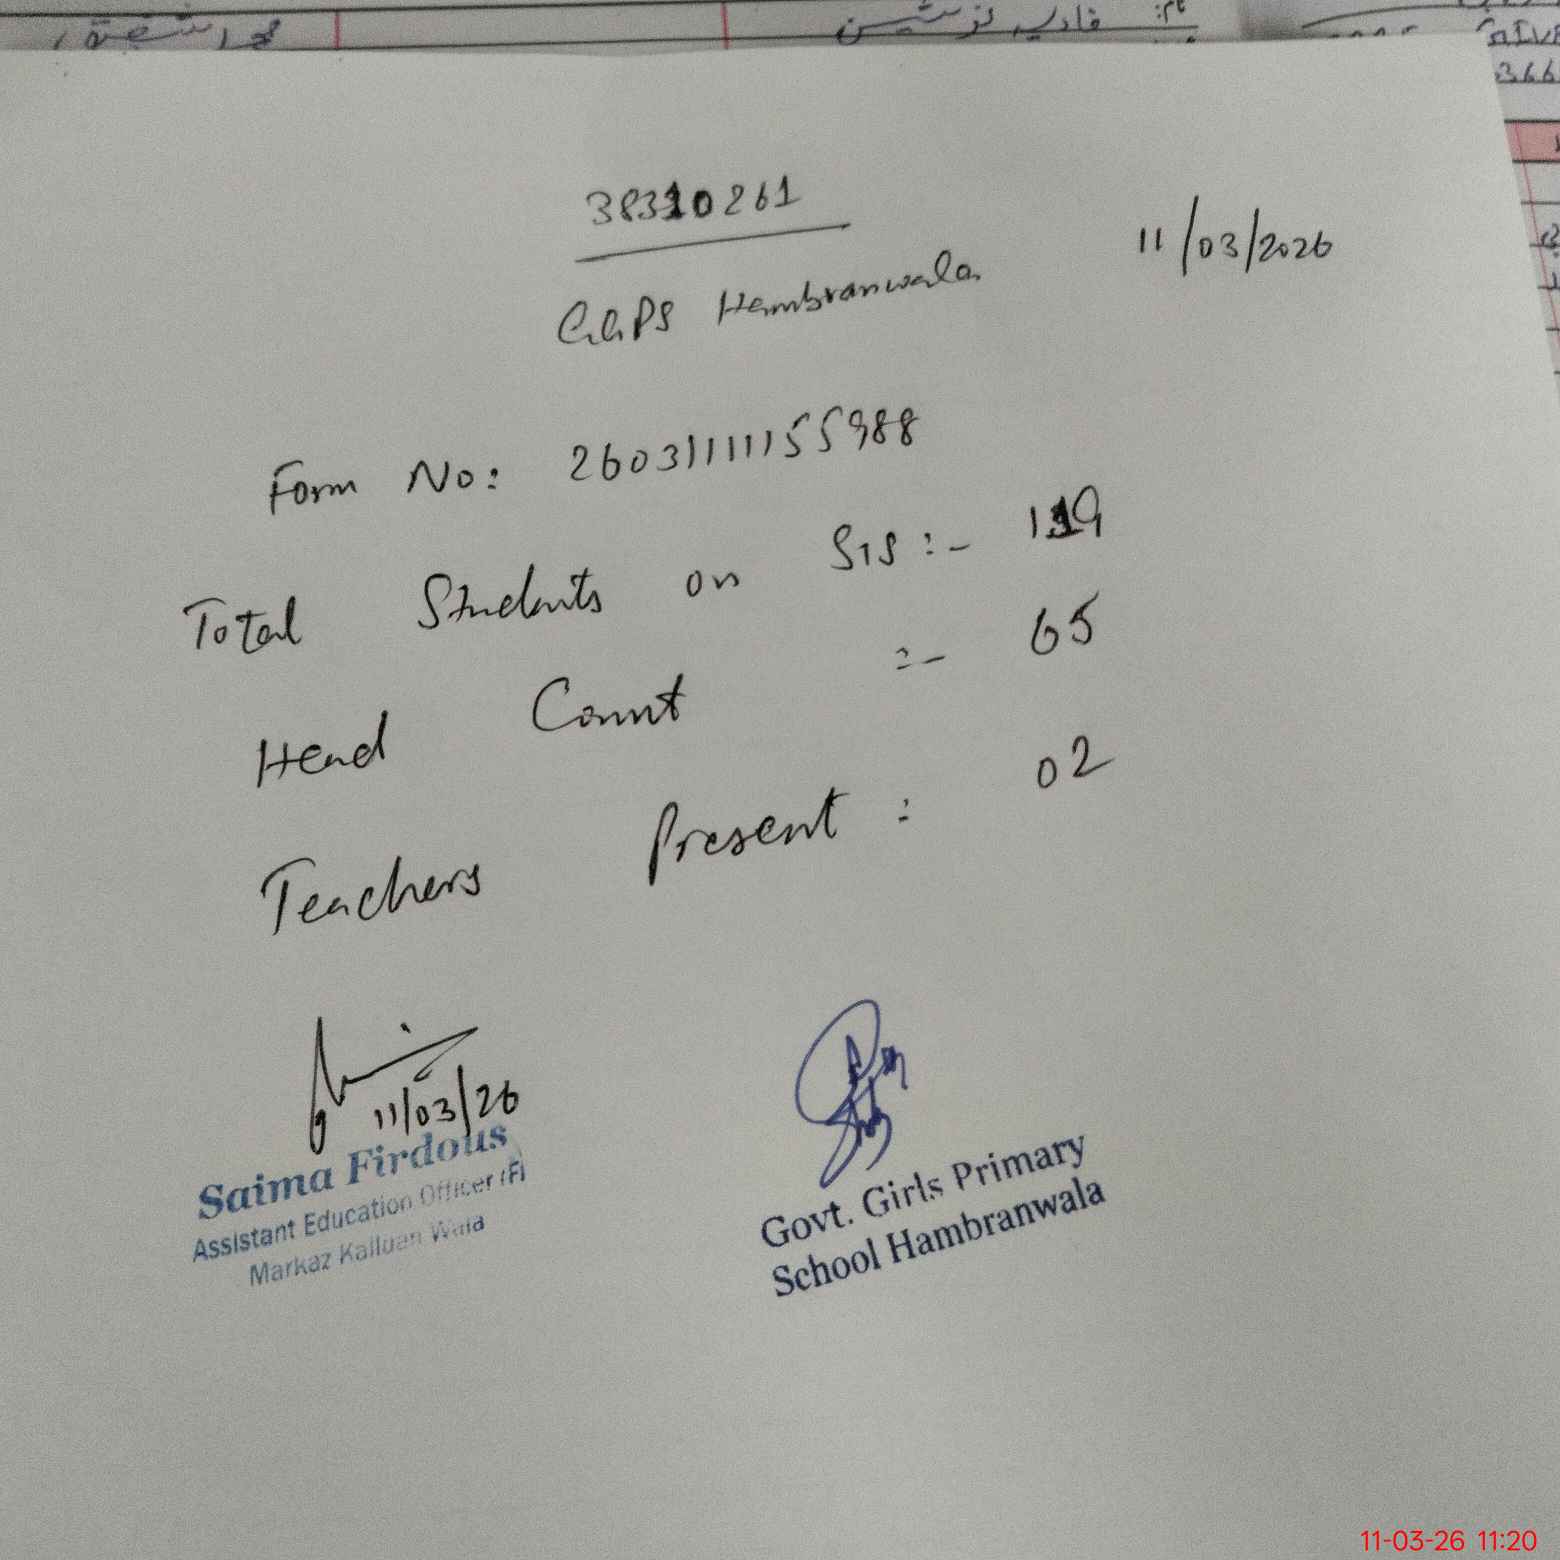 محمد شفیق
نام: فادیہ نوشین
366
38310261
11/03/2026
GGPS Hambranwala
Form No: 26031111155988
Total Students on SIS :- 119
Head Count :- 65
Teachers Present : 02
11/03/26
Saima Firdous
Assistant Education Officer (F)
Markaz Kalluan Wala
Govt. Girls Primary
School Hambranwala
11-03-26 11:20